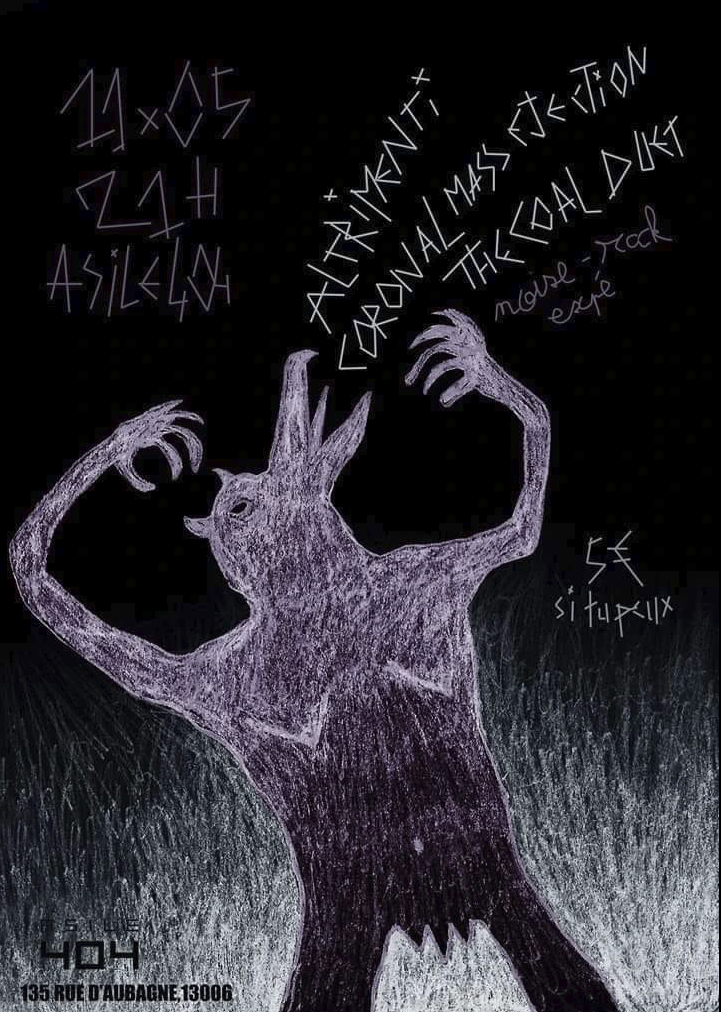 11x05
21H
ASiLE404
ALTRiMENTi
CORONAL MASS EJECTiON
THE COAL DUET
noise-rock
expé
5€
si tu peux
ASILE
404
135 RUE D'AUBAGNE,13006